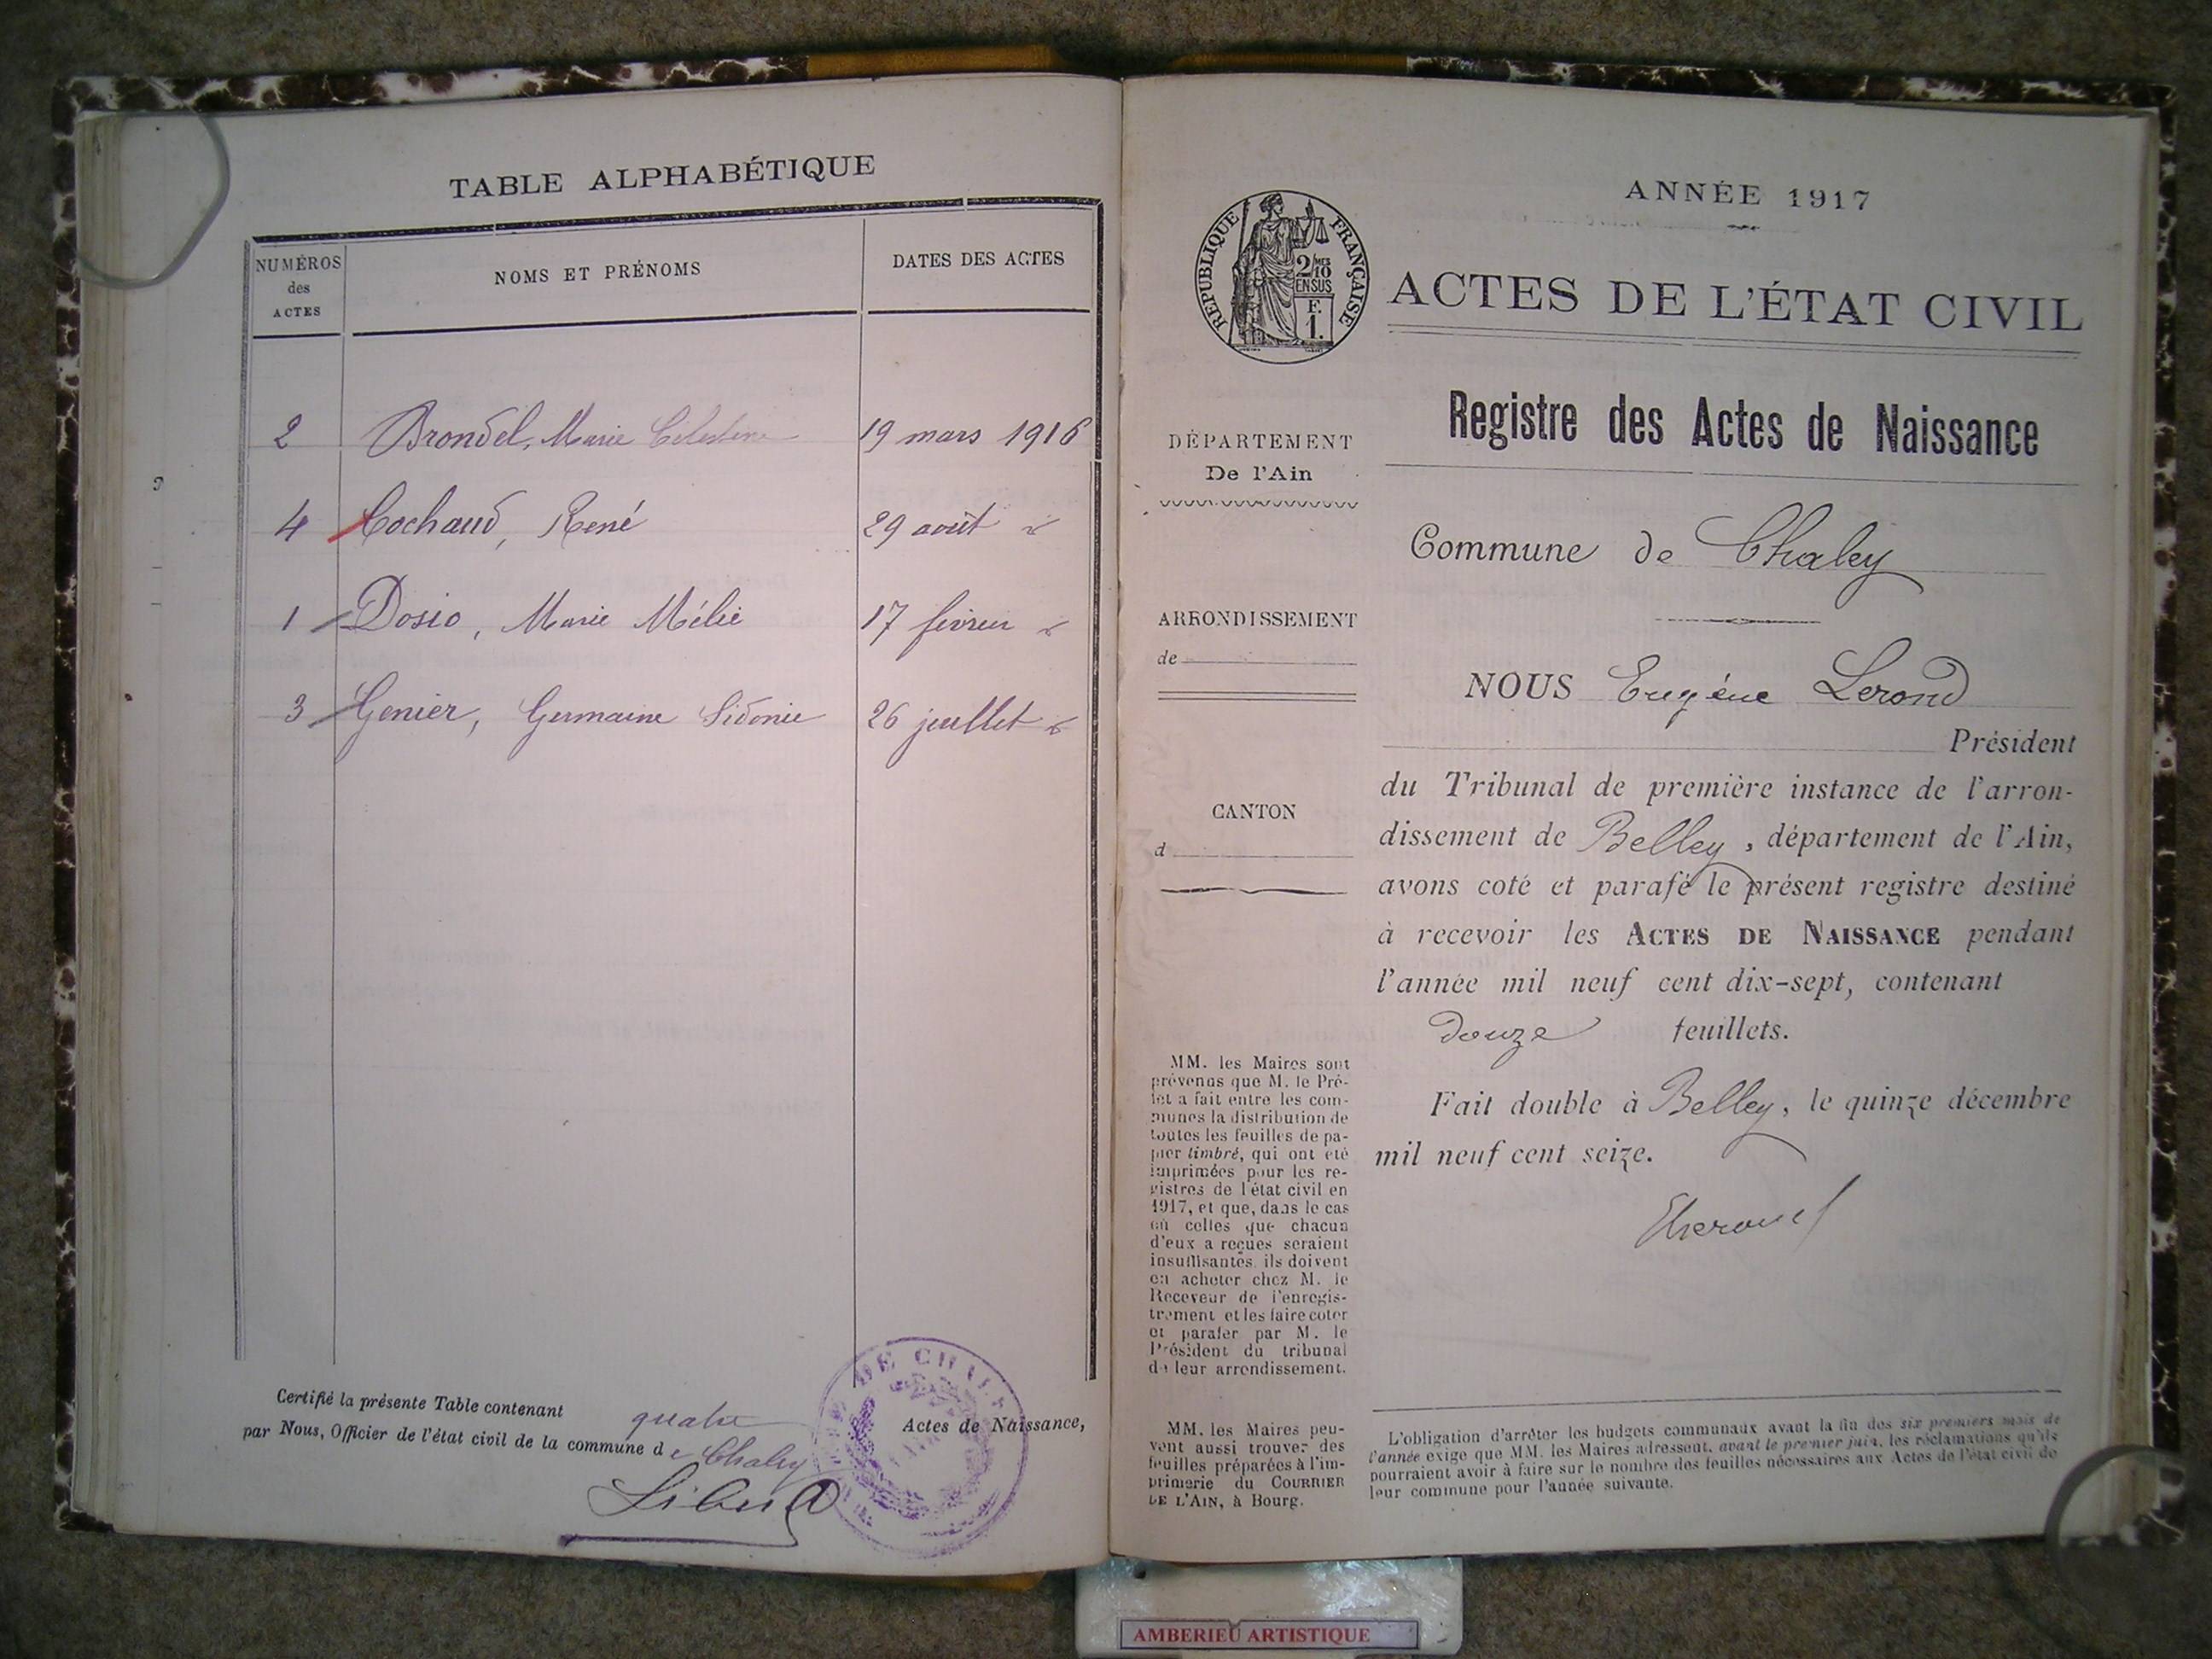 TABLE ALPHABÉTIQUE
NUMÉROS
des
ACTES
NOMS ET PRÉNOMS
DATES DES ACTES
2 Brondel, Marie Célestine 19 mars 1916
4 Cochaud, René 29 août "
1 Dosio, Marie Mélie 17 février "
3 Genier, Germaine Sidonie 26 juillet "
Certifié la présente Table contenant quatre Actes de Naissance,
par Nous, Officier de l'état civil de la commune de Chaley
DE CHALEY
ANNÉE 1917
RÉPUBLIQUE FRANÇAISE
2/10 MES
EN SUS
F.
1.
ACTES DE L'ÉTAT CIVIL
Registre des Actes de Naissance
DÉPARTEMENT
De l'Ain
ARRONDISSEMENT
de
CANTON
d
MM. les Maires sont
prévenus que M. le Pré-
fet a fait entre les com-
munes la distribution de
toutes les feuilles de pa-
pier timbré, qui ont été
imprimées pour les re-
gistres de l'état civil en
1917, et que, dans le cas
où celles que chacun
d'eux a reçues seraient
insuffisantes, ils doivent
en acheter chez M. le
Receveur de l'enregis-
trement et les faire coter
et parafer par M. le
Président du tribunal
de leur arrondissement.
MM. les Maires peu-
vent aussi trouver des
feuilles préparées à l'im-
primerie du COURRIER
DE L'AIN, à Bourg.
Commune de Chaley
NOUS Eugène Lerond
Président
du Tribunal de première instance de l'arron-
dissement de Belley, département de l'Ain,
avons coté et parafé le présent registre destiné
à recevoir les ACTES DE NAISSANCE pendant
l'année mil neuf cent dix-sept, contenant
douze feuillets.
Fait double à Belley, le quinze décembre
mil neuf cent seize.
ELerond
L'obligation d'arrêter les budgets communaux avant la fin des six premiers mois de
l'année exige que MM. les Maires adressent, avant le premier juin, les réclamations qu'ils
pourraient avoir à faire sur le nombre des feuilles nécessaires aux Actes de l'état civil de
leur commune pour l'année suivante.
AMBERIEU ARTISTIQUE